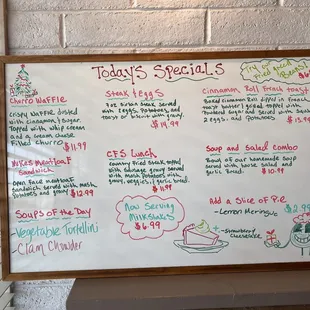 Today's Specials
Try our
fried green
Beans!
$6
Churro Waffle
Crispy Waffle dusted
with cinnamon & sugar.
Topped with whip cream
and a cream cheese
filled churro.
$11.99
Mike's Meatloaf
Sandwich
Open face meatloaf
sandwich served with mash
potatoes and gravy
$12.99
Soups of the Day
-Vegetable Tortellini
-Clam Chowder
Steak & Eggs
7oz Sirloin steak served
with 2 eggs, potatoes, and
toast or biscuit with gravy
$14.99
CFS Lunch
Country fried steak topped
with sausage gravy served
with mash potatoes with
gravy, veggies, & garlic bread.
$11.99
Now Serving
Milkshakes
$6.99
Cinnamon Roll French toast
Baked cinnamon Roll dipped in French
toast butter grilled topped with
powdered sugar served with
2 eggs and potatoes.
Soup and Salad Combo
Bowl of our homemade soup
served with house salad and
garlic bread.
$10.99
Add a Slice of Pie
$2.99
-Lemon Meringue
-Strawberry
Cheesecake